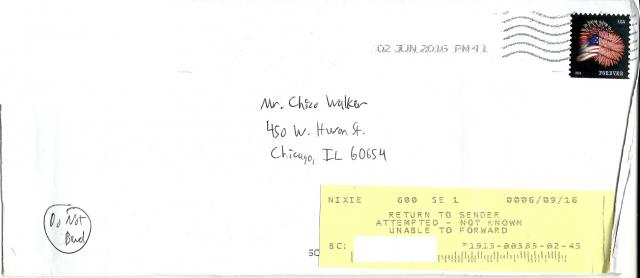 02 JUN 2016 PM 4 L
USA
FOREVER
Mr. Chico Walker
450 W. Huron St.
Chicago, IL 60654
Do Not
Bend
NIXIE 600 SE 1 0006/09/16
RETURN TO SENDER
ATTEMPTED - NOT KNOWN
UNABLE TO FORWARD
BC: *1913-00383-02-45
SC